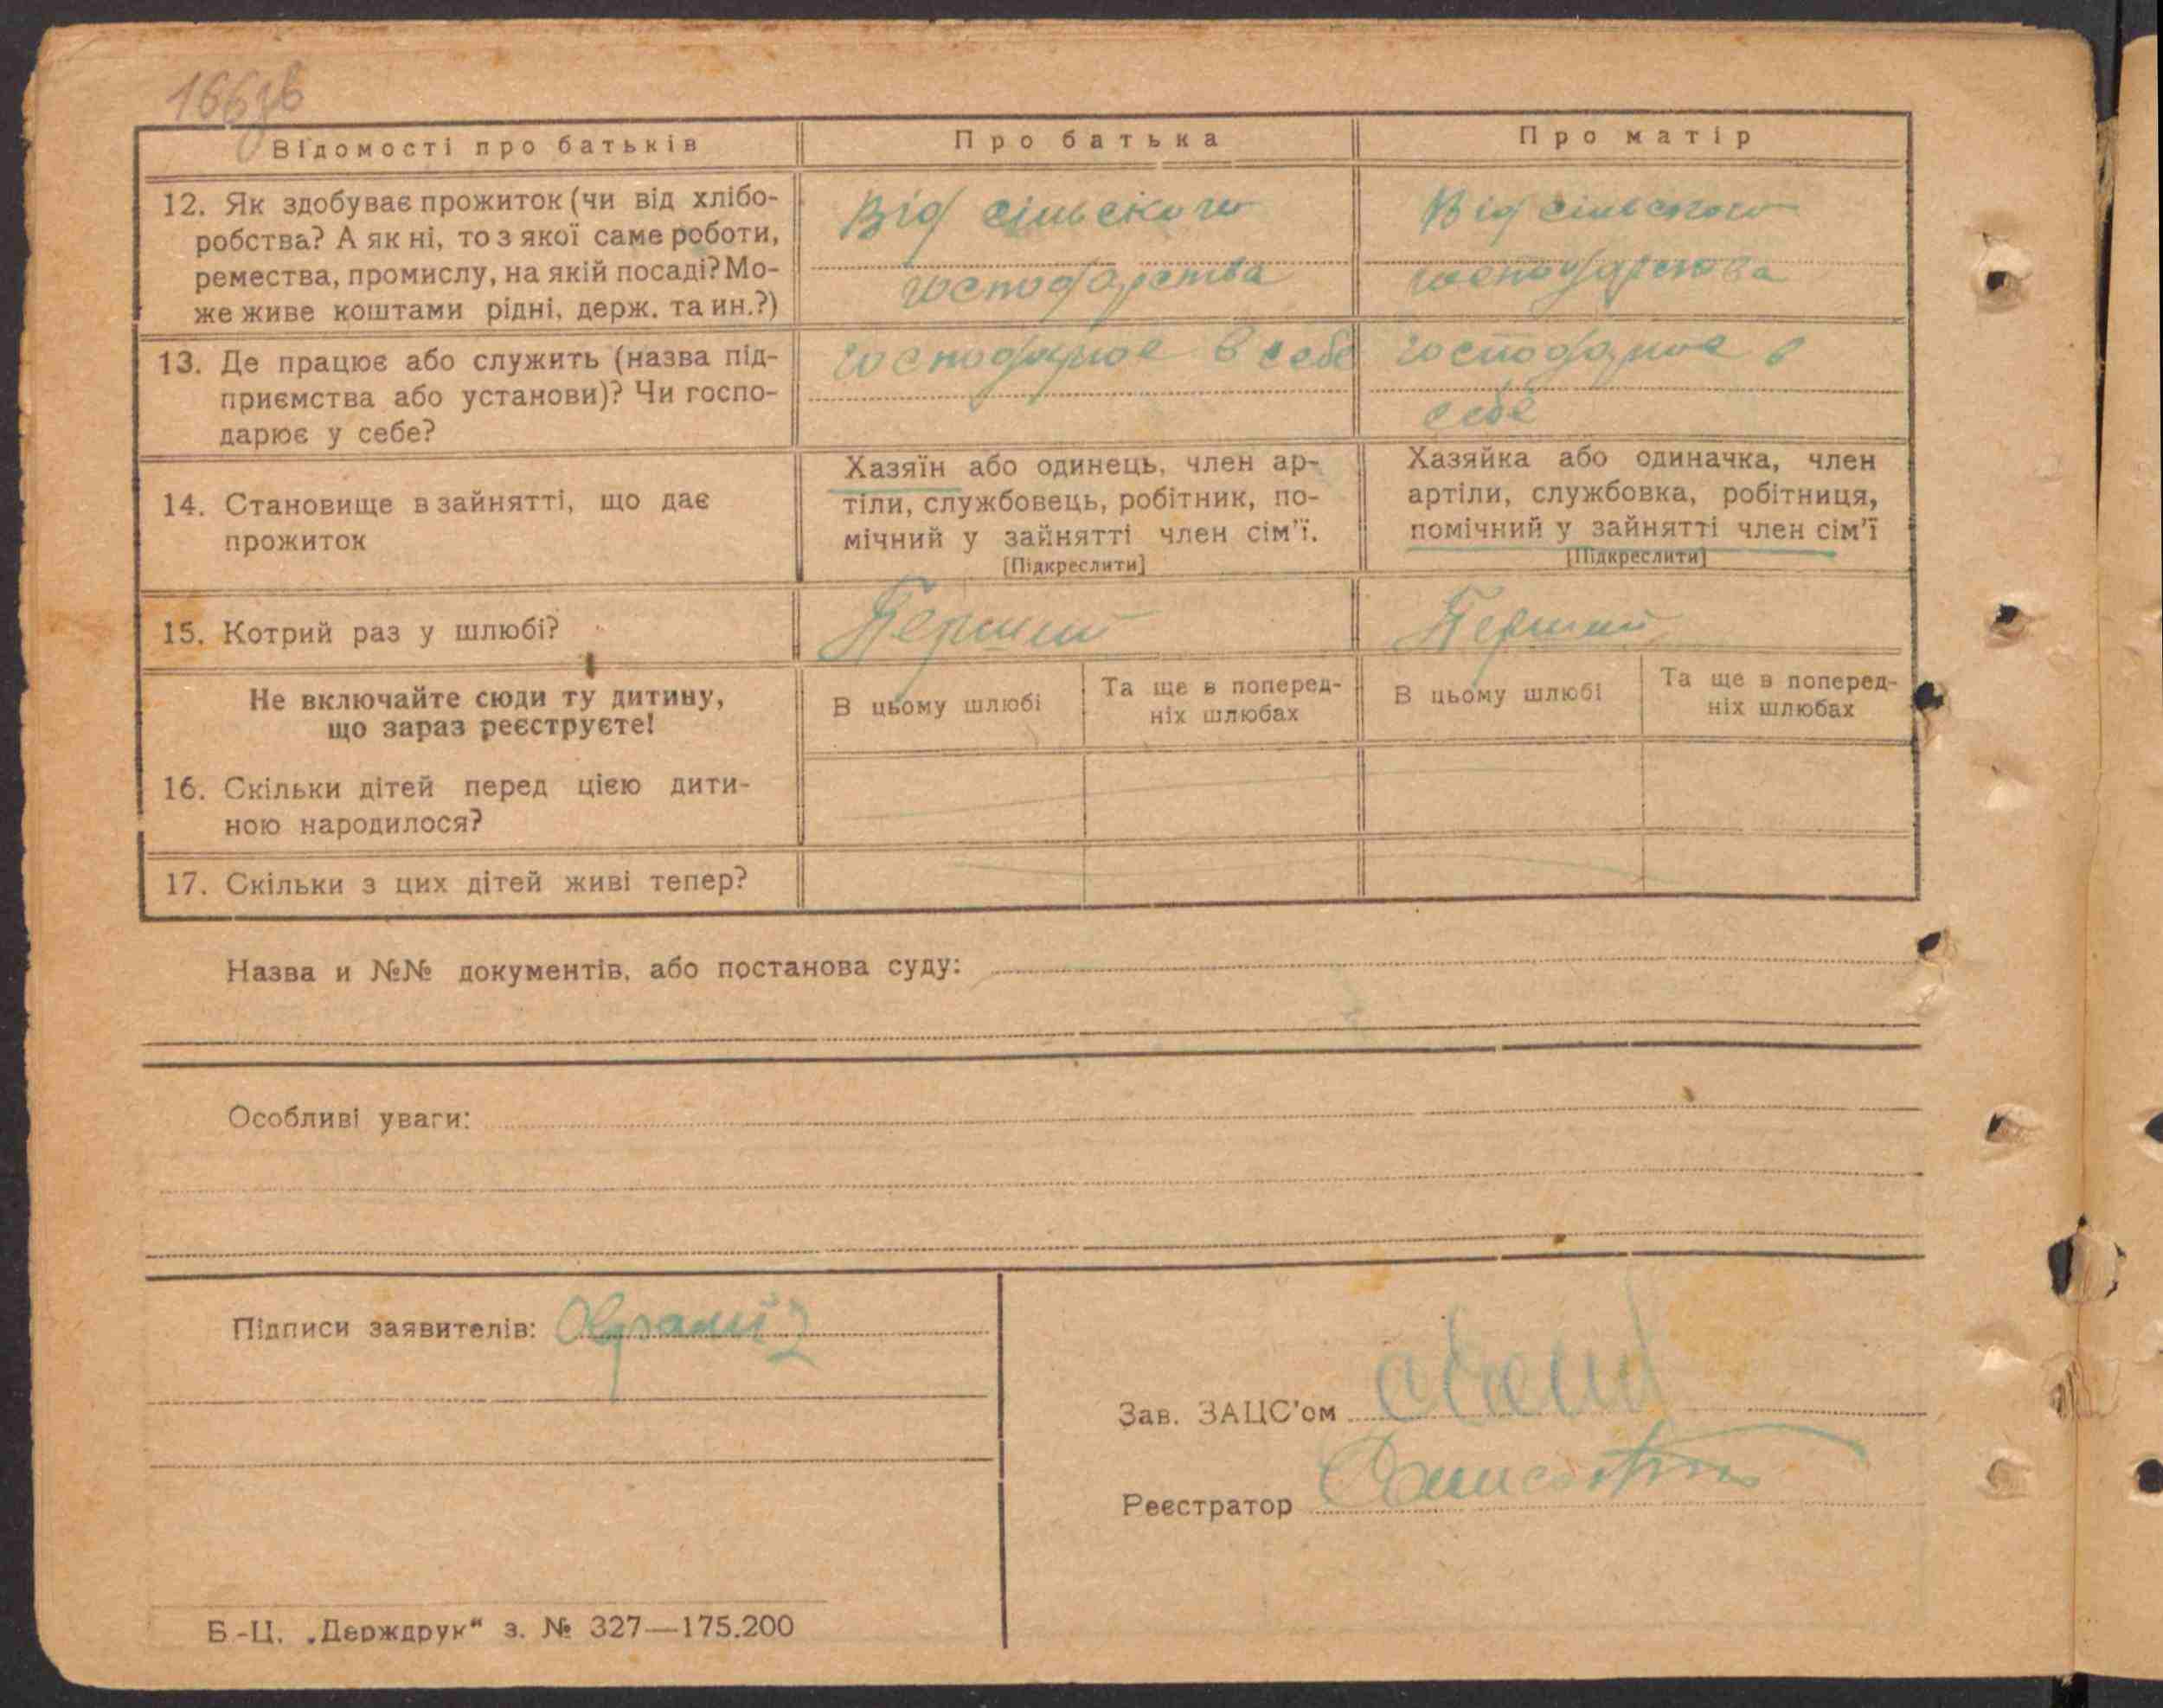 166зв
Відомості про батьків
Про батька
Про матір
12. Як здобуває прожиток (чи від хлібо-
робства? А як ні, то з якої саме роботи,
ремества, промислу, на якій посаді? Мо-
же живе коштами рідні, держ. та ин.?)
Від сільского
господарства
Від сільского
господарства
13. Де працює або служить (назва під-
приємства або установи)? Чи госпо-
дарює у себе?
господарює в себе
господарює в
себе
14. Становище в зайнятті, що дає
прожиток
Хазяїн або одинець, член ар-
тіли, службовець, робітник, по-
мічний у зайнятті член сім'ї.
[Підкреслити]
Хазяйка або одиначка, член
артіли, службовка, робітниця,
помічний у зайнятті член сім'ї
[Підкреслити]
15. Котрий раз у шлюбі?
Перший
Перший
Не включайте сюди ту дитину,
що зараз реєструєте!
В цьому шлюбі
Та ще в поперед-
ніх шлюбах
В цьому шлюбі
Та ще в поперед-
ніх шлюбах
16. Скільки дітей перед цією дити-
ною народилося?
17. Скільки з цих дітей живі тепер?
Назва и №№ документів, або постанова суду:
Особливі уваги:
Підписи заявителів:
Зав. ЗАЦС'ом
Реєстратор
Б-Ц. „Держдрук“ з. № 327—175.200